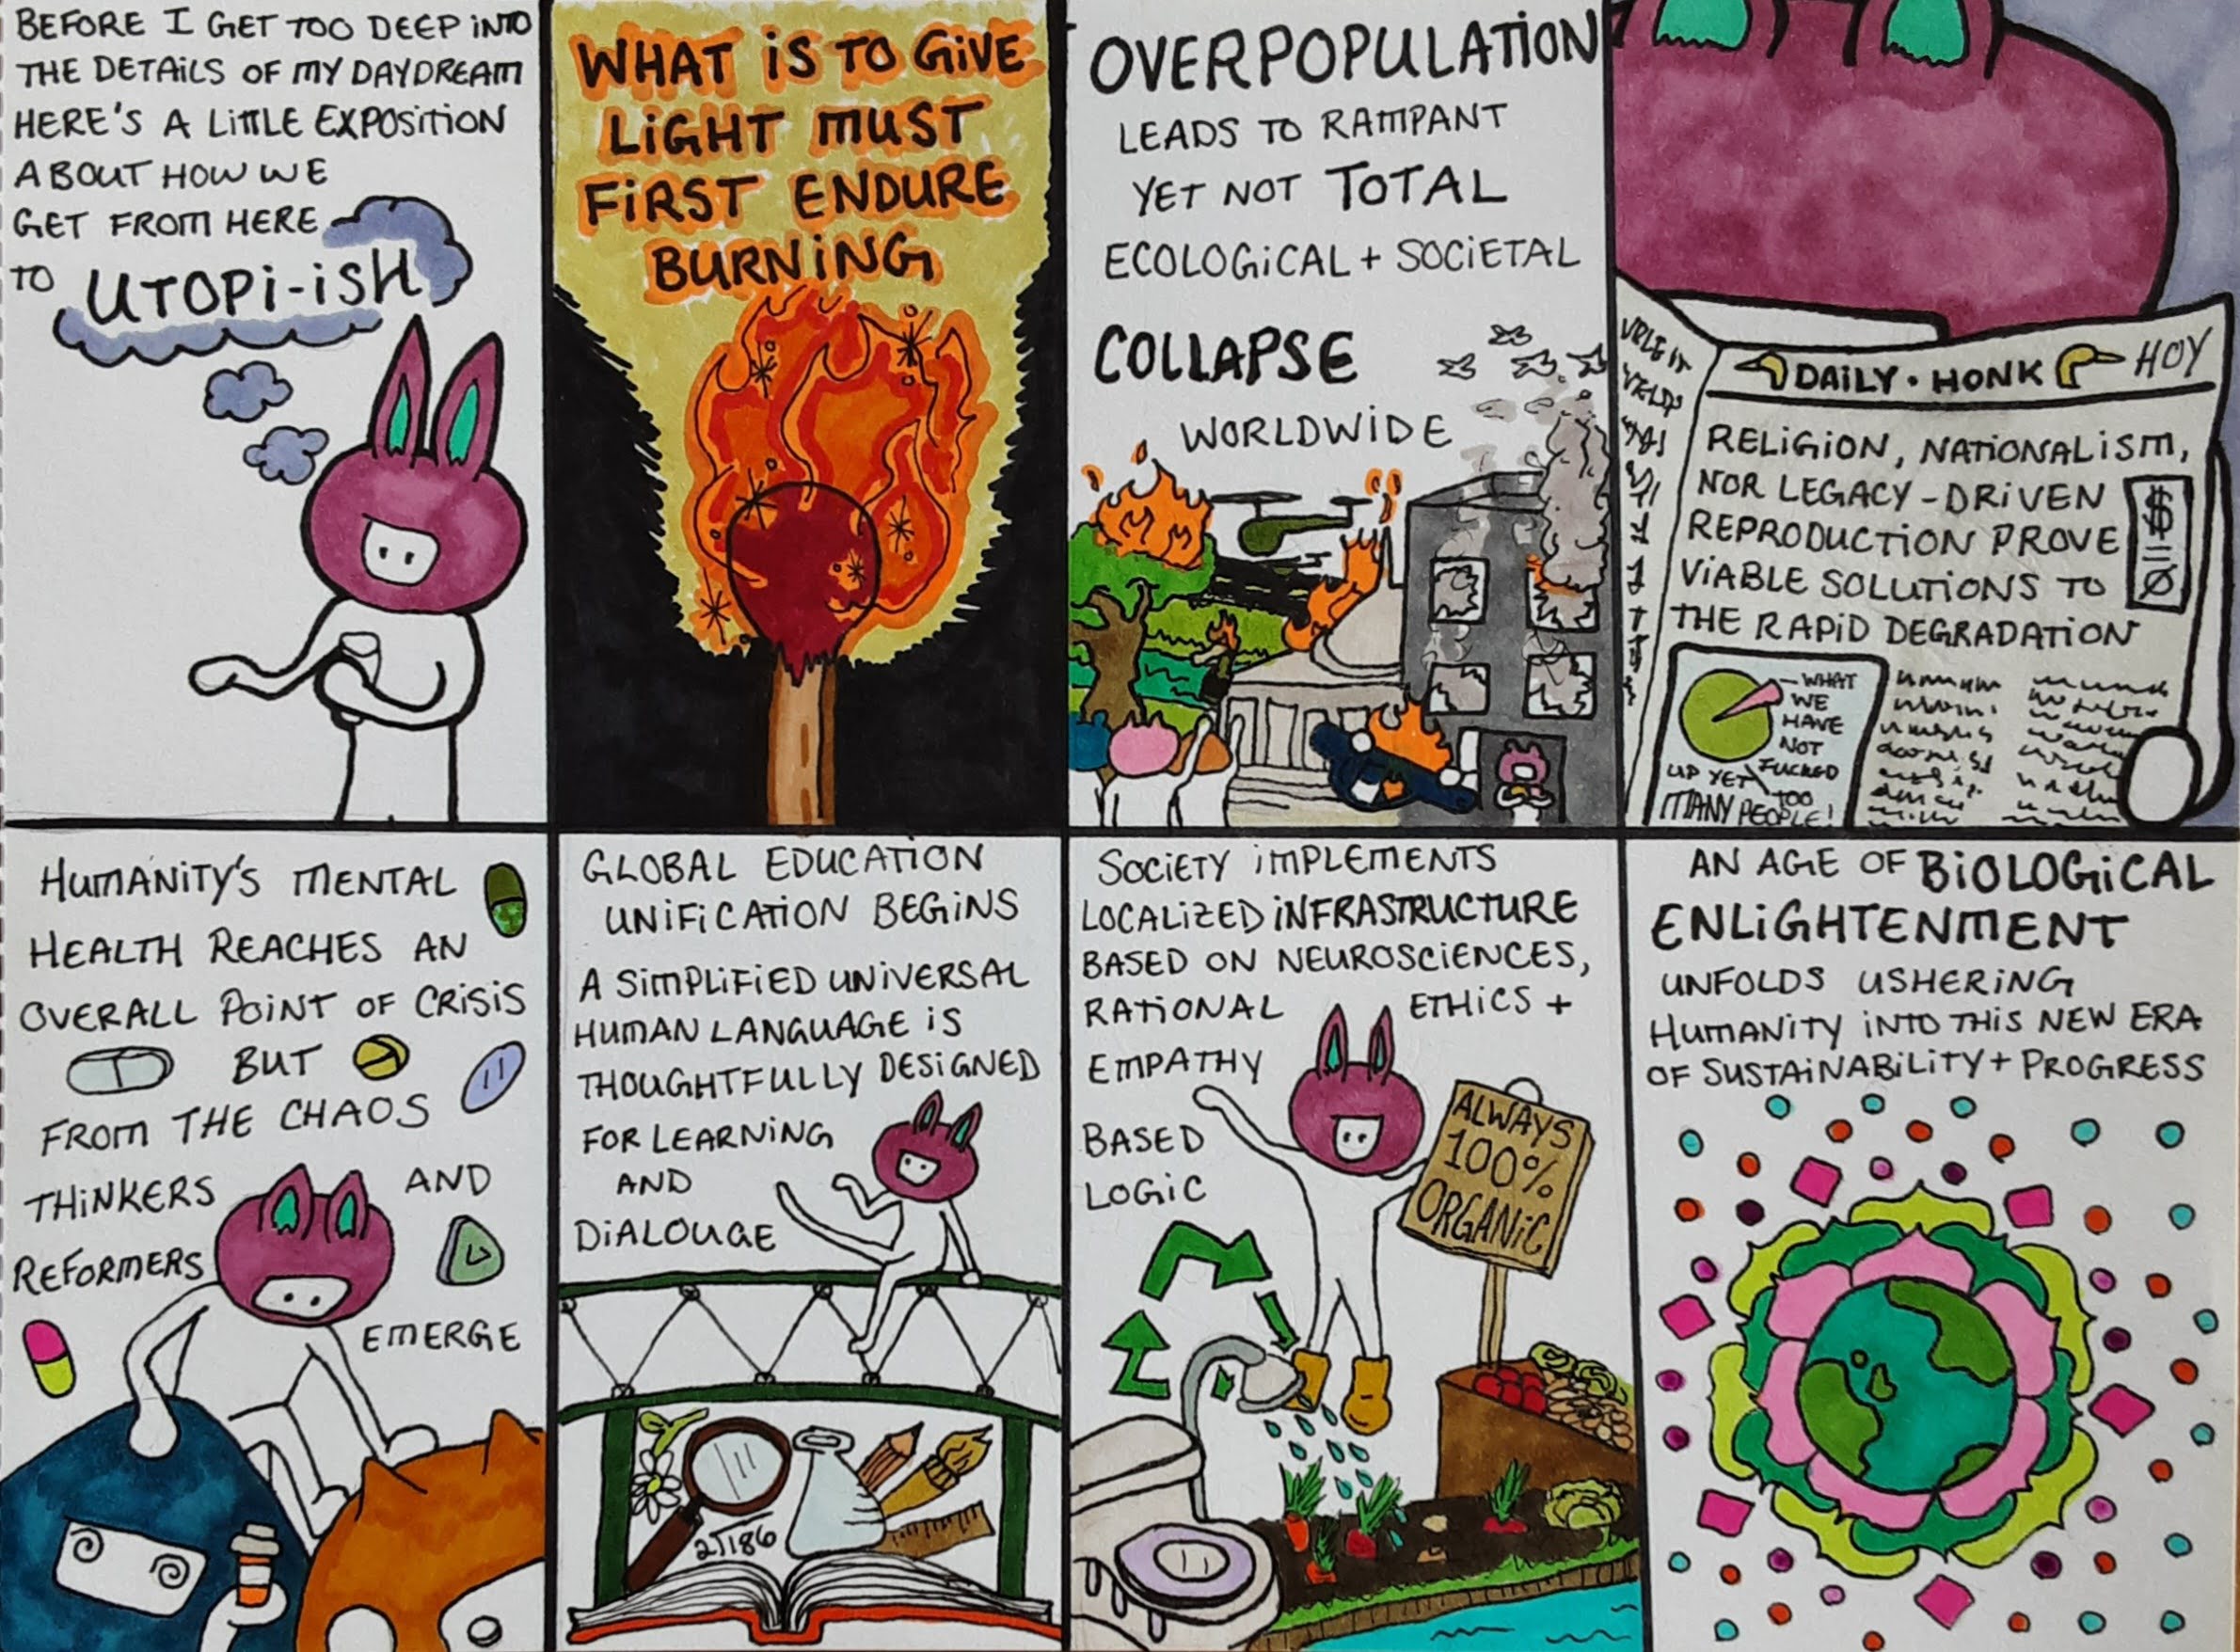 BEFORE I GET TOO DEEP INTO
THE DETAILS OF MY DAYDREAM
HERE'S A LITTLE EXPOSITION
ABOUT HOW WE
GET FROM HERE
TO UTOPI-ISH
WHAT IS TO GIVE
LIGHT MUST
FIRST ENDURE
BURNING
OVERPOPULATION
LEADS TO RAMPANT
YET NOT TOTAL
ECOLOGICAL + SOCIETAL
COLLAPSE
WORLDWIDE
DAILY · HONK
HOY
RELIGION, NATIONALISM,
NOR LEGACY-DRIVEN
REPRODUCTION PROVE
VIABLE SOLUTIONS TO
THE RAPID DEGRADATION
$
=
Ø
WHAT
WE
HAVE
NOT
FUCKED
UP YET
TOO
MANY PEOPLE!
HUMANITY'S MENTAL
HEALTH REACHES AN
OVERALL POINT OF CRISIS
BUT
FROM THE CHAOS
THINKERS AND
REFORMERS
EMERGE
GLOBAL EDUCATION
UNIFICATION BEGINS
A SIMPLIFIED UNIVERSAL
HUMAN LANGUAGE IS
THOUGHTFULLY DESIGNED
FOR LEARNING
AND
DIALOUGE
2√186
SOCIETY IMPLEMENTS
LOCALIZED INFRASTRUCTURE
BASED ON NEUROSCIENCES,
RATIONAL ETHICS +
EMPATHY
BASED
LOGIC
ALWAYS
100%
ORGANIC
AN AGE OF BIOLOGICAL
ENLIGHTENMENT
UNFOLDS USHERING
HUMANITY INTO THIS NEW ERA
OF SUSTAINABILITY + PROGRESS